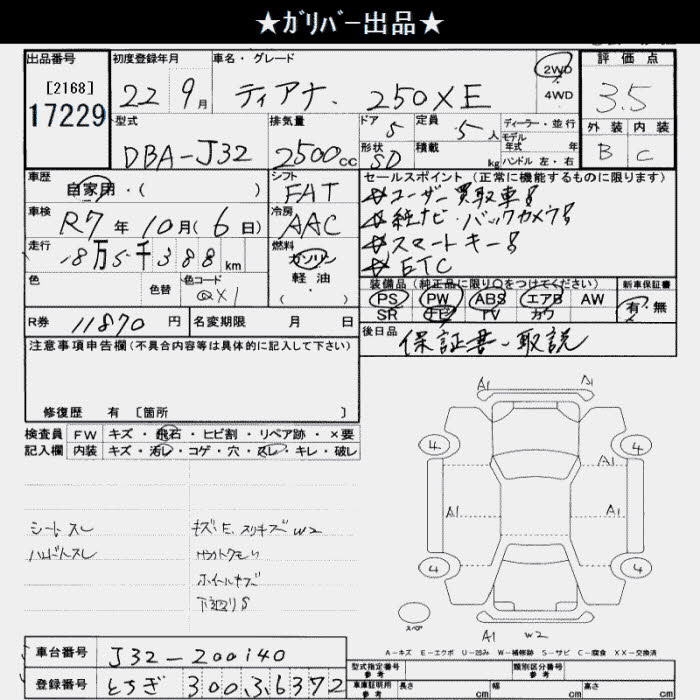 ★ｶﾞﾘﾊﾞｰ出品★
出品番号
[2168]
17229
初度登録年月
22 9月
車名・グレード
ティアナ 250XE
2WD
4WD
評価点
3.5
外装 内装
B C
型式
DBA-J32
排気量
2500cc
ドア 5
形状 SD
定員 5人
積載 kg
ディーラー・並行
モデル年式 年
ハンドル 左・右
車歴
自家用・( )
シフト
FAT
車検
R7年10月(6日)
冷房
AAC
走行
18万5千388km
燃料
ガソリン
軽油
( ・ )
色
色替
色コード
セールスポイント (正常に機能するものに限ります)
ユーザー買取車
純ナビ・バックカメラ
スマートキー
ETC
装備品(純正品に限り○をつけてください)
PS PW ABS エアB AW
SR ナビ TV カワ
新車保証書
有・無
R券 11870円
名変期限 月 日
後日品
保証書・取説
注意事項申告欄(不具合内容等は具体的に記入して下さい)
修復歴 有 [箇所 ]
検査員記入欄
FW キズ・飛石・ヒビ割・リペア跡・×要
内装 キズ・汚レ・コゲ・穴・スレ・キレ・破レ
シートスレ
ハンドルスレ
キズ・E、スリキズW2
ホイールキズ
下廻りS
A1 A1
4 4
A1
A1 A1
4 4
スペア
A1 W2
A-キズ E-エクボ U-凹み W-補修跡 S-サビ C-腐食 XX-交換済
車台番号 J32-200140
登録番号 とちぎ 300 す 6372
型式指定番号 参考
類別区分番号 参考
車庫証明用 参考
長さ cm 幅 cm 高さ cm